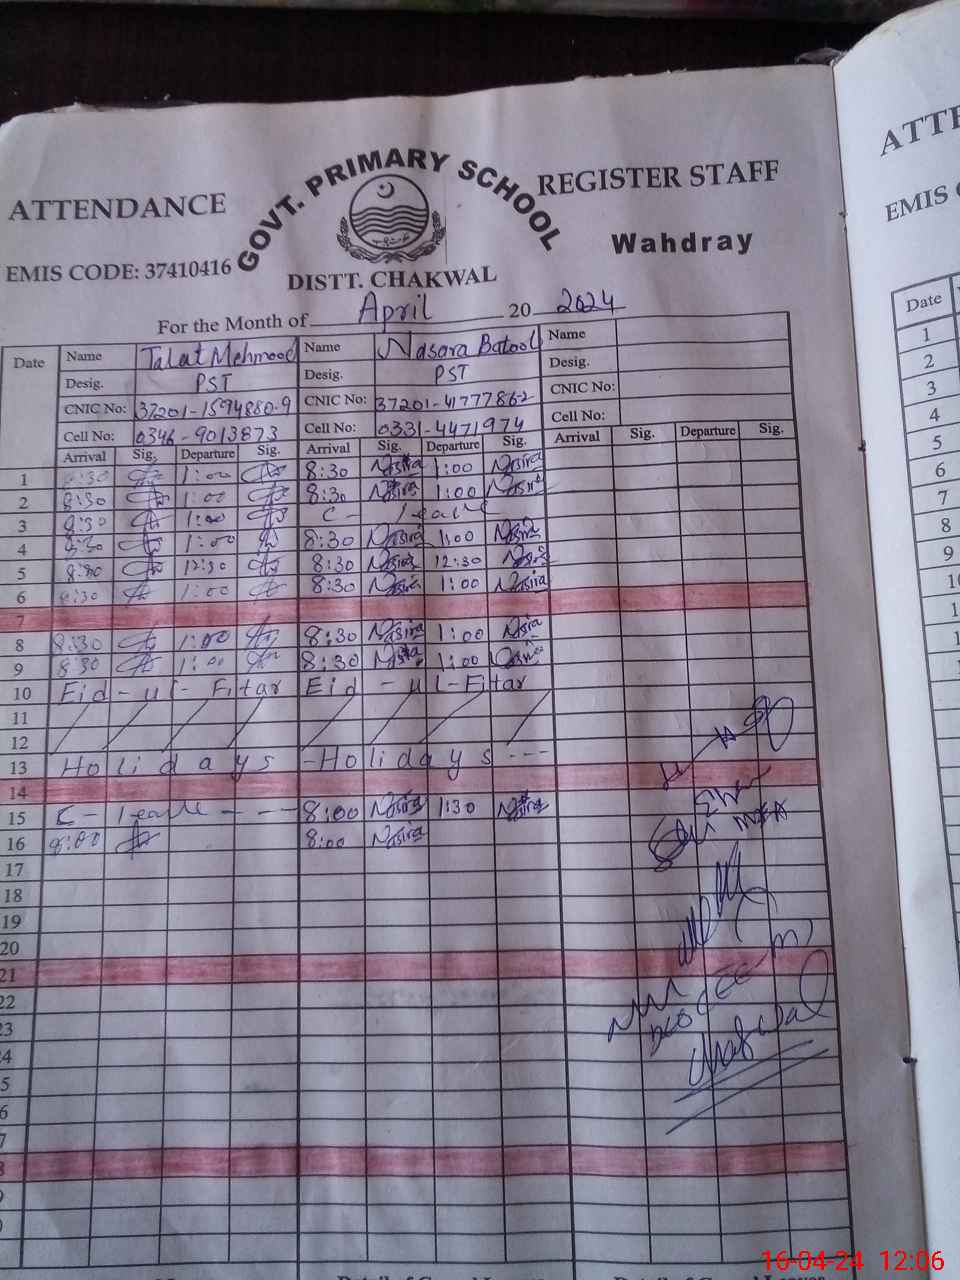 ATTENDANCE GOVT. PRIMARY SCHOOL REGISTER STAFF
Wahdray
EMIS CODE: 37410416
DISTT. CHAKWAL
For the Month of April 2024
Date Name Talat Mehmood Name Nasara Batool Name
Desig. PST Desig. PST Desig.
CNIC No: 37201-1594880-9 CNIC No: 37201-4177786-2 CNIC No:
Cell No: 0346-9013873 Cell No: 0331-4471974 Cell No:
Arrival Sig. Departure Sig. Arrival Sig. Departure Sig. Arrival Sig. Departure Sig.
1 8:30 1:00 8:30 Nasira 1:00 Nasira
2 8:30 1:00 8:30 Nasira 1:00 Nasira
3 8:30 1:00 C- leave
4 8:30 1:00 8:30 Nasira 1:00 Nasira
5 8:30 12:30 8:30 Nasira 12:30 Nasira
6 8:30 1:00 8:30 Nasira 1:00 Nasira
7
8 8:30 1:00 8:30 Nasira 1:00 Nasira
9 8:30 1:00 8:30 Nasira 1:00
10 Eid-ul-Fitar Eid-ul-Fitar
11
12
13 Holidays -Holidays ---
14
15 C- leave --- 8:00 Nasira 1:30 Nasira
16 8:00 8:00 Nasira
17
18
19
20
21
22
23
MEA
Chakwal
ATTE
EMIS
Date
1
2
3
4
5
6
7
8
9
16-04-24 12:06